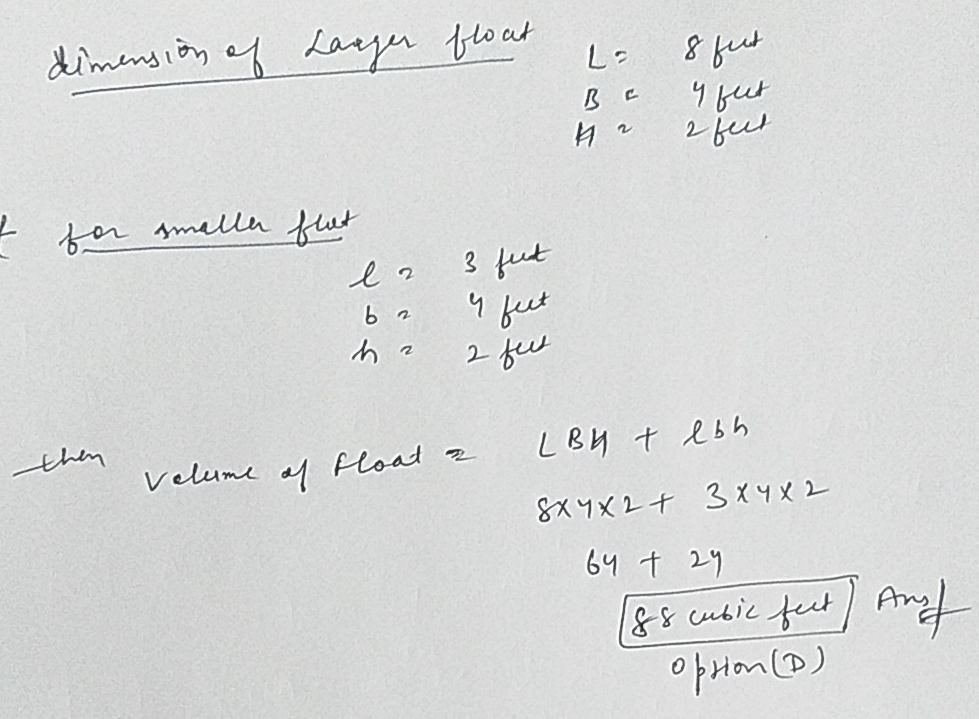 dimension of Larger float
L = 8 feet
B = 4 feet
H = 2 feet
for smaller float
l = 3 feet
b = 4 feet
h = 2 feet
then Volume of float = LBH + lbh
8x4x2 + 3x4x2
64 + 24
88 cubic feet Ans
option (D)